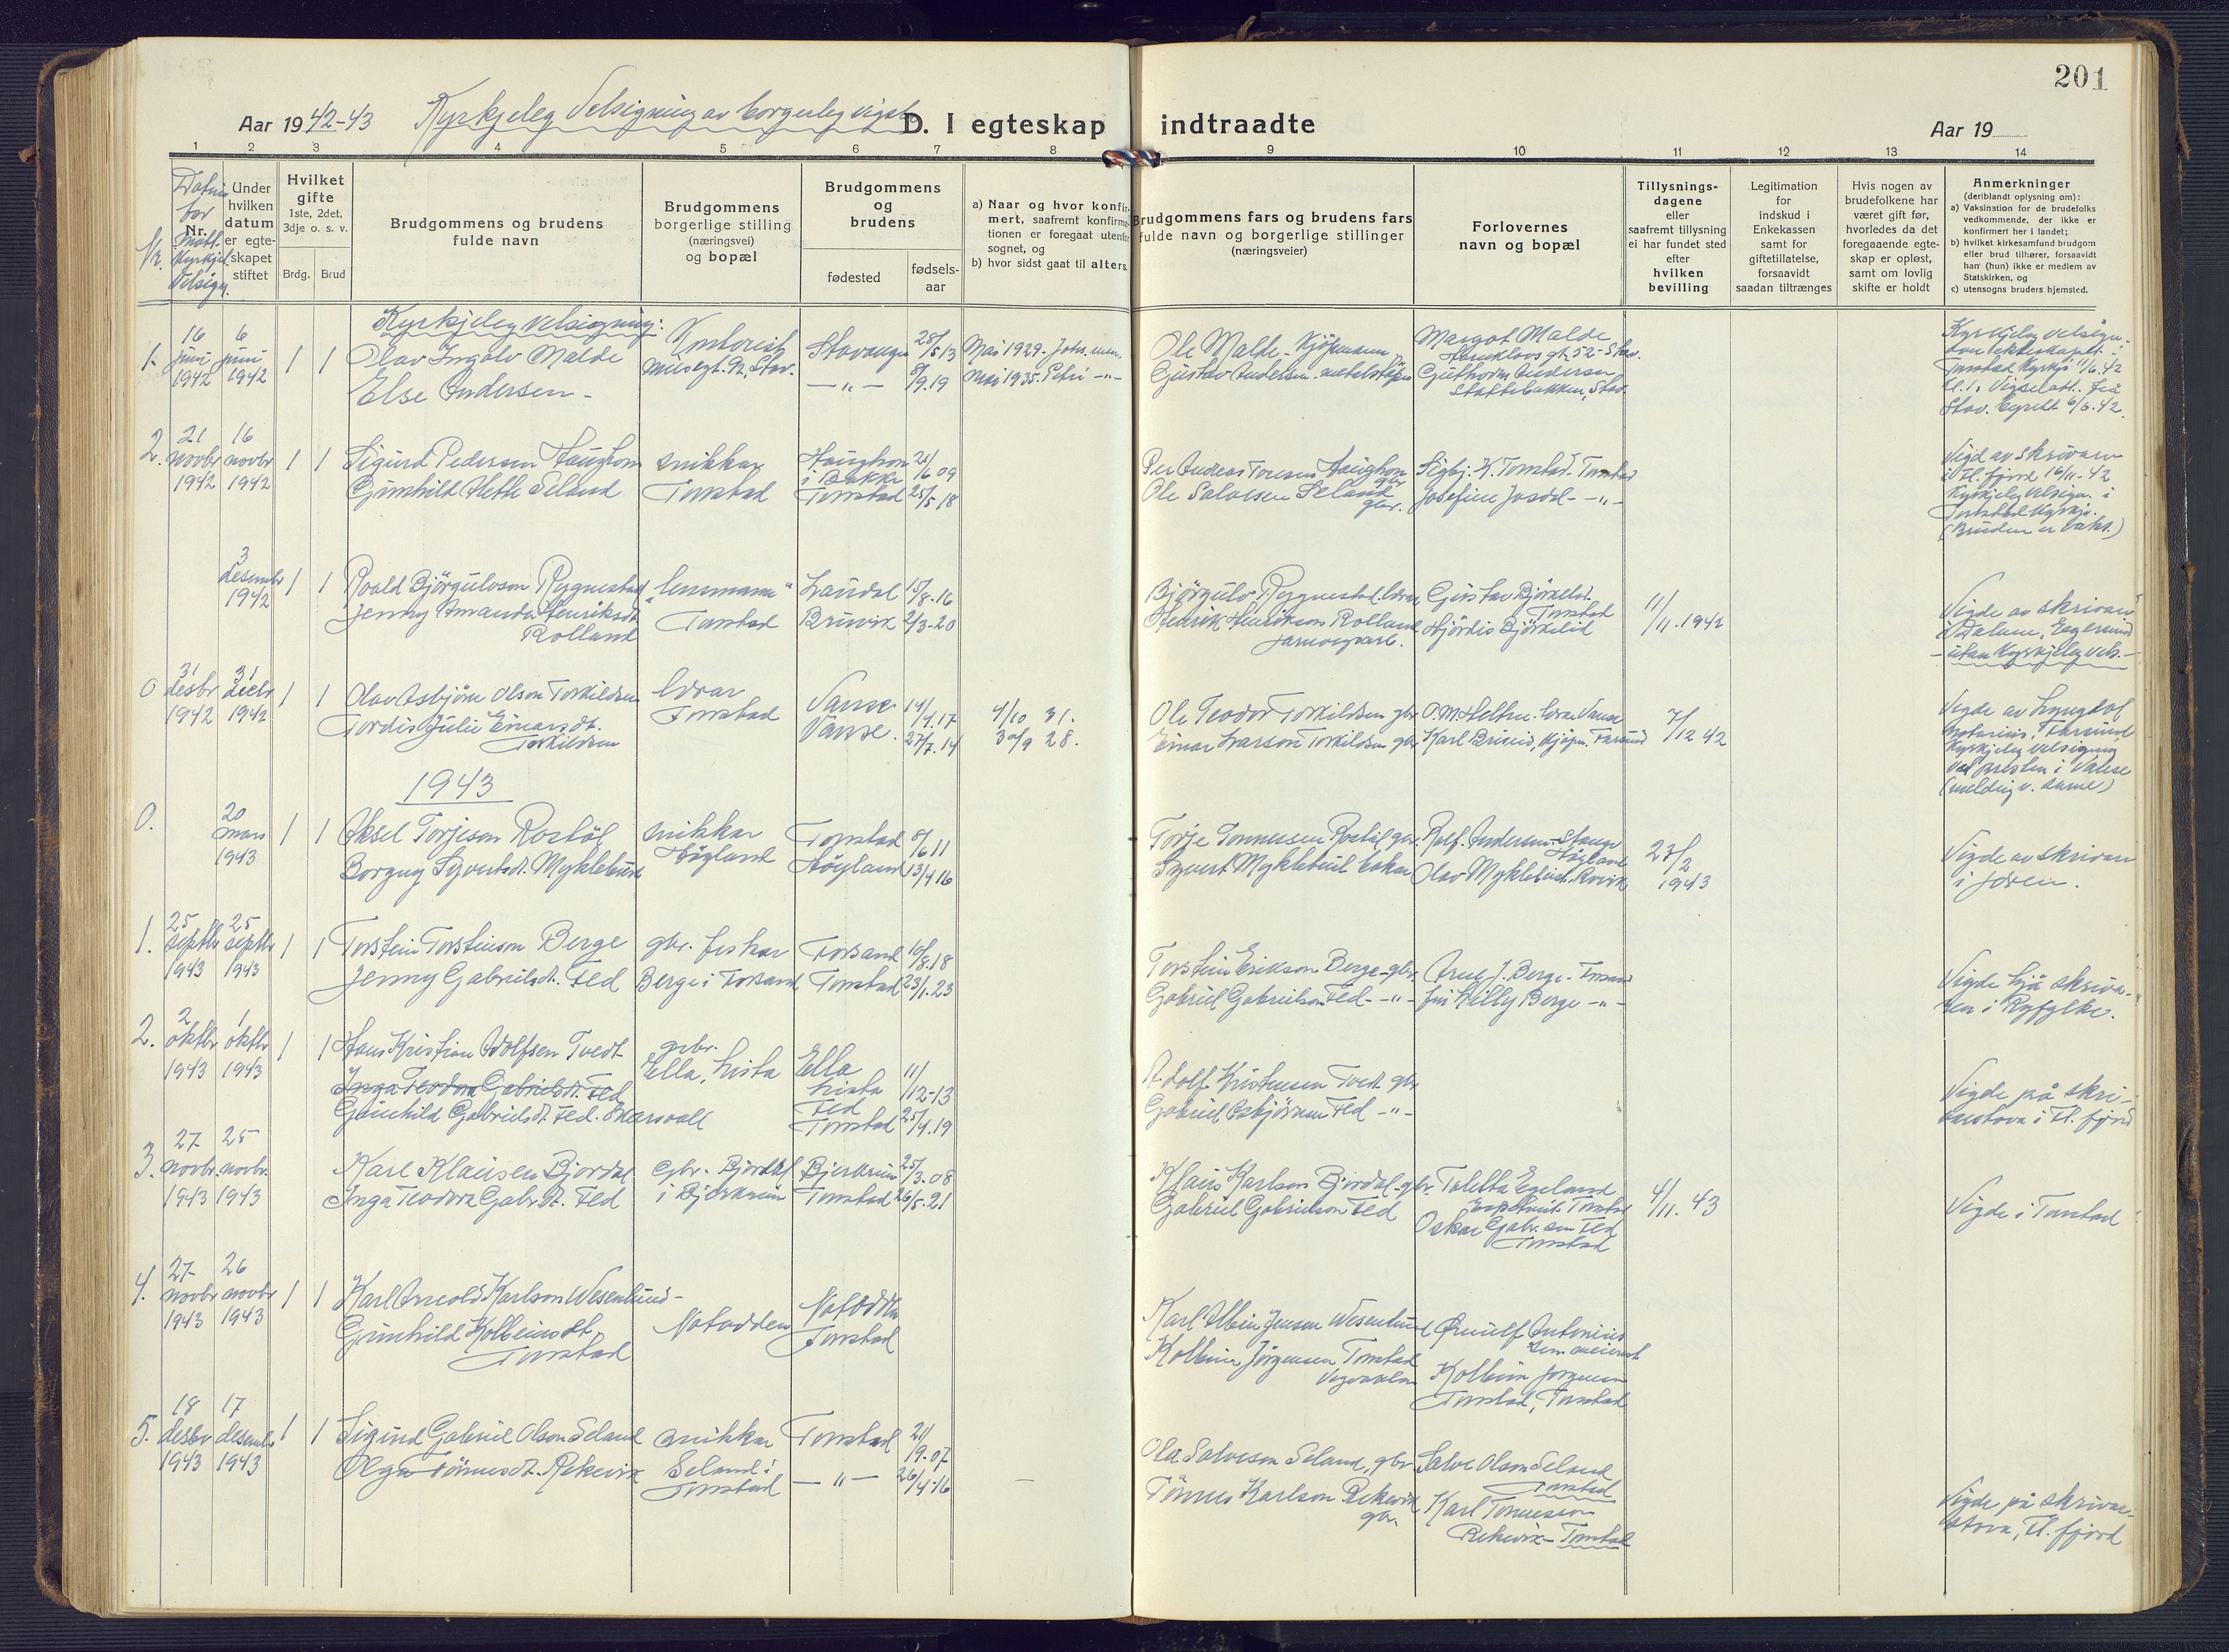 201
Aar 19 42-43 Kyrkjeleg Velsigning av borgerleg vigsle D. I egteskap indtraadte Aar 19
1 2 3 4 5 6 7 8 9 10 11 12 13 14
Nr.
Datum for
Nr.
Kyrkjel.
Velsign.
Under
hvilken
datum
er egte-
skapet
stiftet
Hvilket
gifte
1ste, 2det,
3dje o. s. v.
Brdg. Brud
Brudgommens og brudens
fulde navn
Brudgommens
borgerlige stilling
(næringsvei)
og bopæl
Brudgommens
og
brudens
fødested
fødsels-
aar
a) Naar og hvor konfir-
mert, saafremt konfirma-
tionen er foregaat utenfor
sognet, og
b) hvor sidst gaat til alters.
Brudgommens fars og brudens fars
fulde navn og borgerlige stillinger
(næringsveier)
Forlovernes
navn og bopæl
Tillysnings-
dagene
eller
saafremt tillysning
ei har fundet sted
efter
hvilken
bevilling
Legitimation
for
indskud i
Enkekassen
samt for
giftetillatelse,
forsaavidt
saadan tiltrænges
Hvis nogen av
brudefolkene har
været gift før,
hvorledes da det
foregaaende egte-
skap er opløst,
samt om lovlig
skifte er holdt
Anmerkninger
(deriblandt oplysning om):
a) Vaksination for de brudefolks
vedkommende, der ikke er
konfirmert her i landet;
b) hvilket kirkesamfund brudgom
eller brud tilhører, forsaavidt
han (hun) ikke er medlem av
Statskirken, og
c) utensogns bruders hjemsted.
Kyrkjeleg velsigning:
1. 16 juni 1942 6 juni 1942 1 1
Olav Ingolv Malde
Else Andersen -
Kontorist
Musegt. 92, Stav.
Stavanger 28/5 13
— " — 8/9.19
Mai 1929 - Johs. men.
Mai 1935. Petri — " —
Ole Malde - Kjöpmann
Gustav Andersen
Margot Malde
Guthorm Andersen
Stav.
Kyrkjeleg velsign.
Tonstad Kyrkje 11/6.42
Stav. 6/6.42.
2. 21 novbr 1942 16 novbr 1942 1 1
Sigurd Pedersen Haughom
Gunhild Hette Seland
snikkar
Tonstad
Haughom i Bakke 21/6 09
Tonstad 25/5 18
Per Andreas Toresen Haughom gbr
Ole Salvesen Seland gbr.
Sigbj. K. Tonstad. Tonstad
Josefine Josdal - — " —
Vigd av skrivaren
i Fl. fjord 16/11-42
Kyrkjeleg velsign. i
Tonstad Kyrkje.
(Bruden er vaks.)
3 desembr 1942 1 1
Roald Björgulvson Rygnestad
Jenny Amanda Henriksdt.
Rolland
"lensmann"
Tonstad
Laudal 15/8.16
Bruvik 2/3-20
Björgulv Rygnestad. lærar
Henrik Henrikson Rolland
Gustav Björkelid.
Tonstad
Hjördis Björkelid
11/11.1942
Vigde av skrivaren
i Dalane, Egersund
- utan Kyrkjeleg vels. -
0 31 desbr 1942 31 decbr 1942 1 1
Olav Asbjörn Olson Torkildsen
Tordis Julie Einarsdt.
Torkildsen
lærar
Tonstad
Vanse 14/4.17
Vanse. 27/7.14
4/10 31.
30/9 28.
Ole Teodor Torkildsen gbr
Einar Larson Torkildsen gbr
O.M. Heltne. lærar Vanse
Karl Briseid, Kjöpm. Farsund
7/12 42
Vigde av Lyngdal
notarius, Farsund
Kyrkjeleg velsigning
ved presten i Vanse
(melding v. same)
1943
0. 20 mars 1943 1 1
Aksel Torjeson Rostöl
Borgny Syvertsdt. Myklebust
snikkar
Högland
Tonstad 8/6 11
Höyland 13/4 16
Torje Tonnessen Rostöl gbr.
Syvert Myklebust
Rolf Andersen Stange
Högland
Olav Myklebust.
27/2 1943
Vigde av skrivaren
i Jæren.
1. 25 septbr 1943 25 septbr 1943 1 1
Torstein Torsteinson Berge
Jenny Gabrielsdt. Fed
gbr. fiskar
Berge i Forsand
Forsand 10/8.18
Tonstad 23/1.23
Torstein Erikson Berge - gbr.
Gabriel Gabrielson Fed - — " —
Arne J. Berge - Forsand
frú Lilly Berge - " -
Vigde hjå skriva-
ren i Ryfylke.
2. 2 oktbr 1943 1 oktbr 1943 1 1
Hans Kristian Adolfsen Tvedt
Inga Teodora Gabrielsdt. Fed
Gunhild Gabrielsdt. Fed. Skarsvoll
gbr.
Ella, Lista
Ella Lista 11/12-13
Fed Tonstad 25/4.19
Adolf Kristensen Tvedt gbr
Gabriel Fed — " —
Vigde på skri-
varstova i Fl. fjord
3. 27 novbr. 1943 25 novbr. 1943
Karl Klausen Bjordal
Inga Teodora Gabr.dt. Fed
Gbr. Bjordal
i Bjerkreim
Bjerkreim 25/3.08
Tonstad 26/5.21
Klaus Karlson Bjordal - gbr.
Gabriel Gabrielson Fed
Taletta Egeland
Tonstad
Oskar Gabr.son Fed
Tonstad
4/11. 43
Vigde i Tonstad
4. 27 novbr 1943 26 novbr 1943 1 1
Karl Arnold Karlson Wesenlund -
Gunhild Kolbeinsdt.
Tonstad
Notodden
Notodden
Tonstad
Karl Albin Jensen Wesenlund
Kolbein Jörgensen Tonstad
Vegvaktar
Örnulf Antonius
Kolbein Jörgensen
Tonstad, Tonstad
5. 18 desbr 1943 17 desembr 1943 1 1
Sigurd Gabriel Olson Seland
Olga Tönnesdt. Rekevik
snikkar
Seland i
Tonstad
Tonstad 21/9.07
— " — 26/4.16
Ola Salveson Seland, gbr.
Tönnes Karlson Rekevik
gbr.
Salve Olson Seland
Tonstad
Karl Tönnesson
Rekevik - Tonstad
Vigde på skrivar-
stova, Fl. fjord